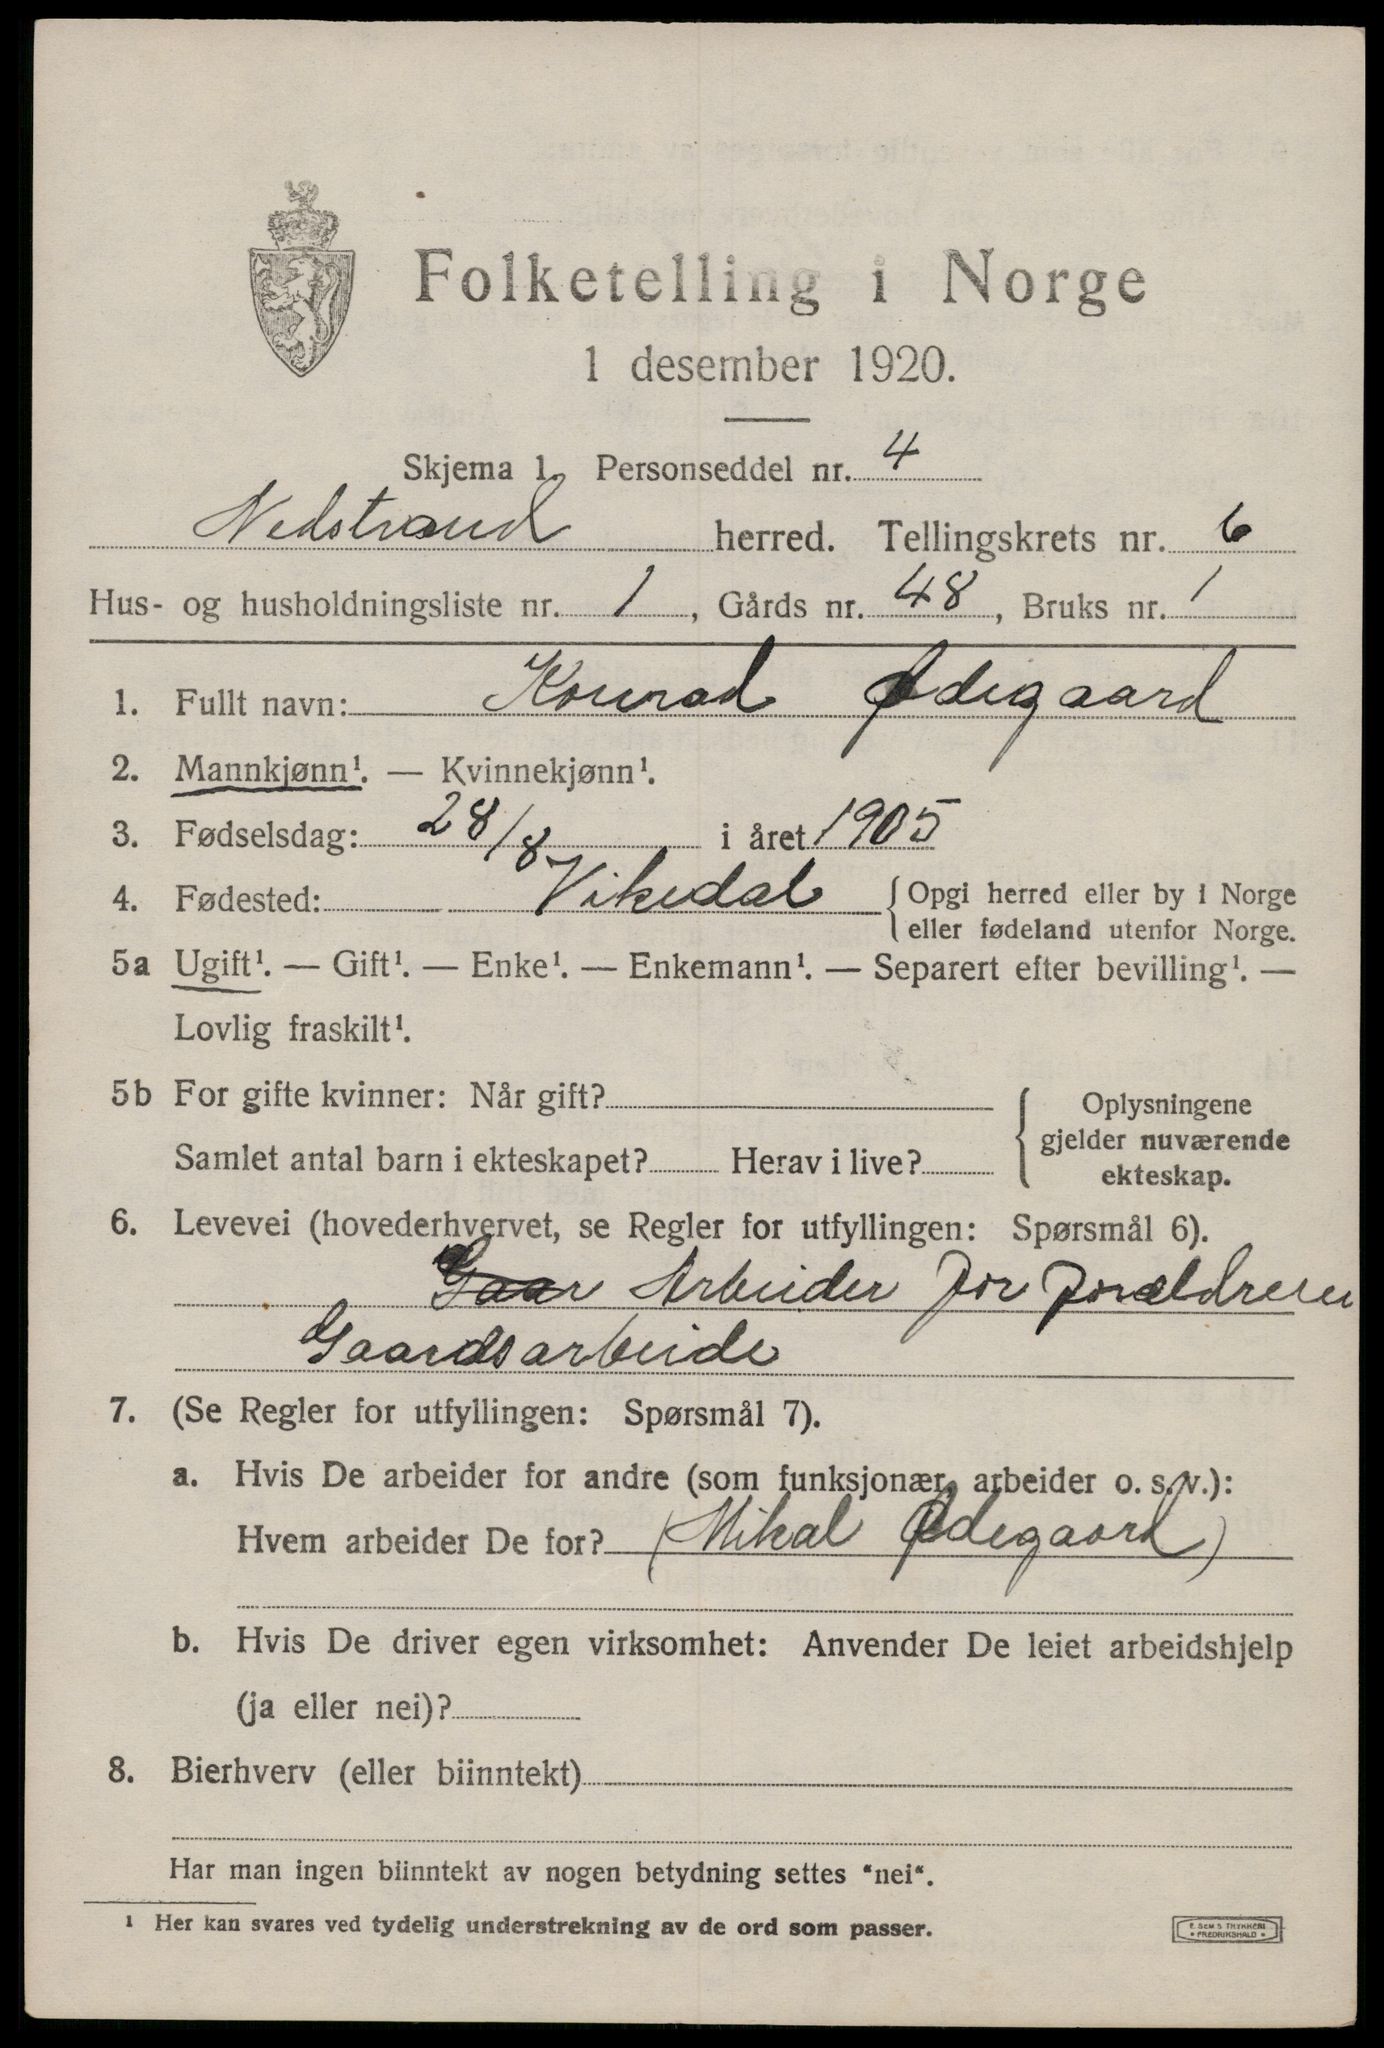 Folketelling i Norge
1 desember 1920.
Skjema 1. Personseddel nr. 4
Nedstrand herred. Tellingskrets nr. 6
Hus- og husholdningsliste nr. 1, Gårds nr. 48, Bruks nr. 1
1. Fullt navn: Konrad Ødegaard
2. Mannkjønn¹. — Kvinnekjønn¹.
3. Fødselsdag: 28/8 i året 1905
4. Fødested: Vikedal { Opgi herred eller by i Norge
eller fødeland utenfor Norge.
5a Ugift¹. — Gift¹. — Enke¹. — Enkemann¹. — Separert efter bevilling¹. —
Lovlig fraskilt¹.
5b For gifte kvinner: Når gift?
Samlet antal barn i ekteskapet? Herav i live?
{ Oplysningene
gjelder nuværende
ekteskap.
6. Levevei (hovederhvervet, se Regler for utfyllingen: Spørsmål 6).
Gaar Arbeider for forældrene
Gaardsarbeide
7. (Se Regler for utfyllingen: Spørsmål 7).
a. Hvis De arbeider for andre (som funksjonær, arbeider o. s. v.):
Hvem arbeider De for? (Mikal Ødegaard)
b. Hvis De driver egen virksomhet: Anvender De leiet arbeidshjelp
(ja eller nei)?
8. Bierhverv (eller biinntekt)
Har man ingen biinntekt av nogen betydning settes "nei".
¹ Her kan svares ved tydelig understrekning av de ord som passer.
E. SEM'S TRYKKERI
• FREDRIKSHALD •